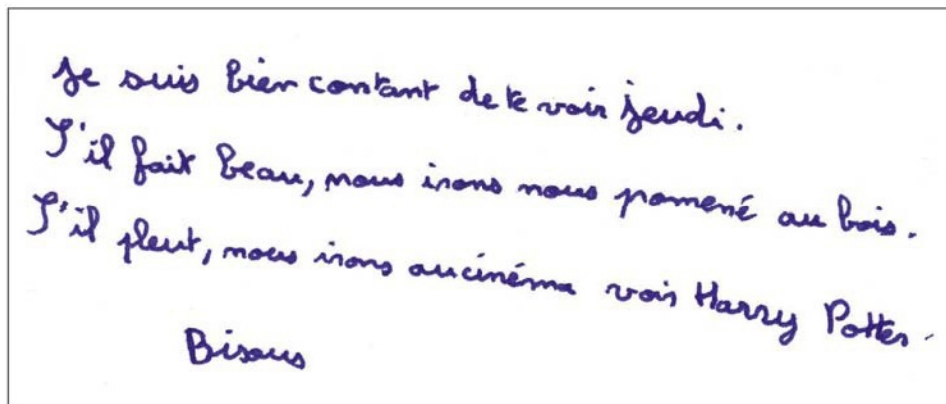 Je suis bien contant de te voir jeudi.
S'il fait beau, nous irons nous pomené au bois.
S'il pleut, nous irons au cinéma voir Harry Potter.
Bisous